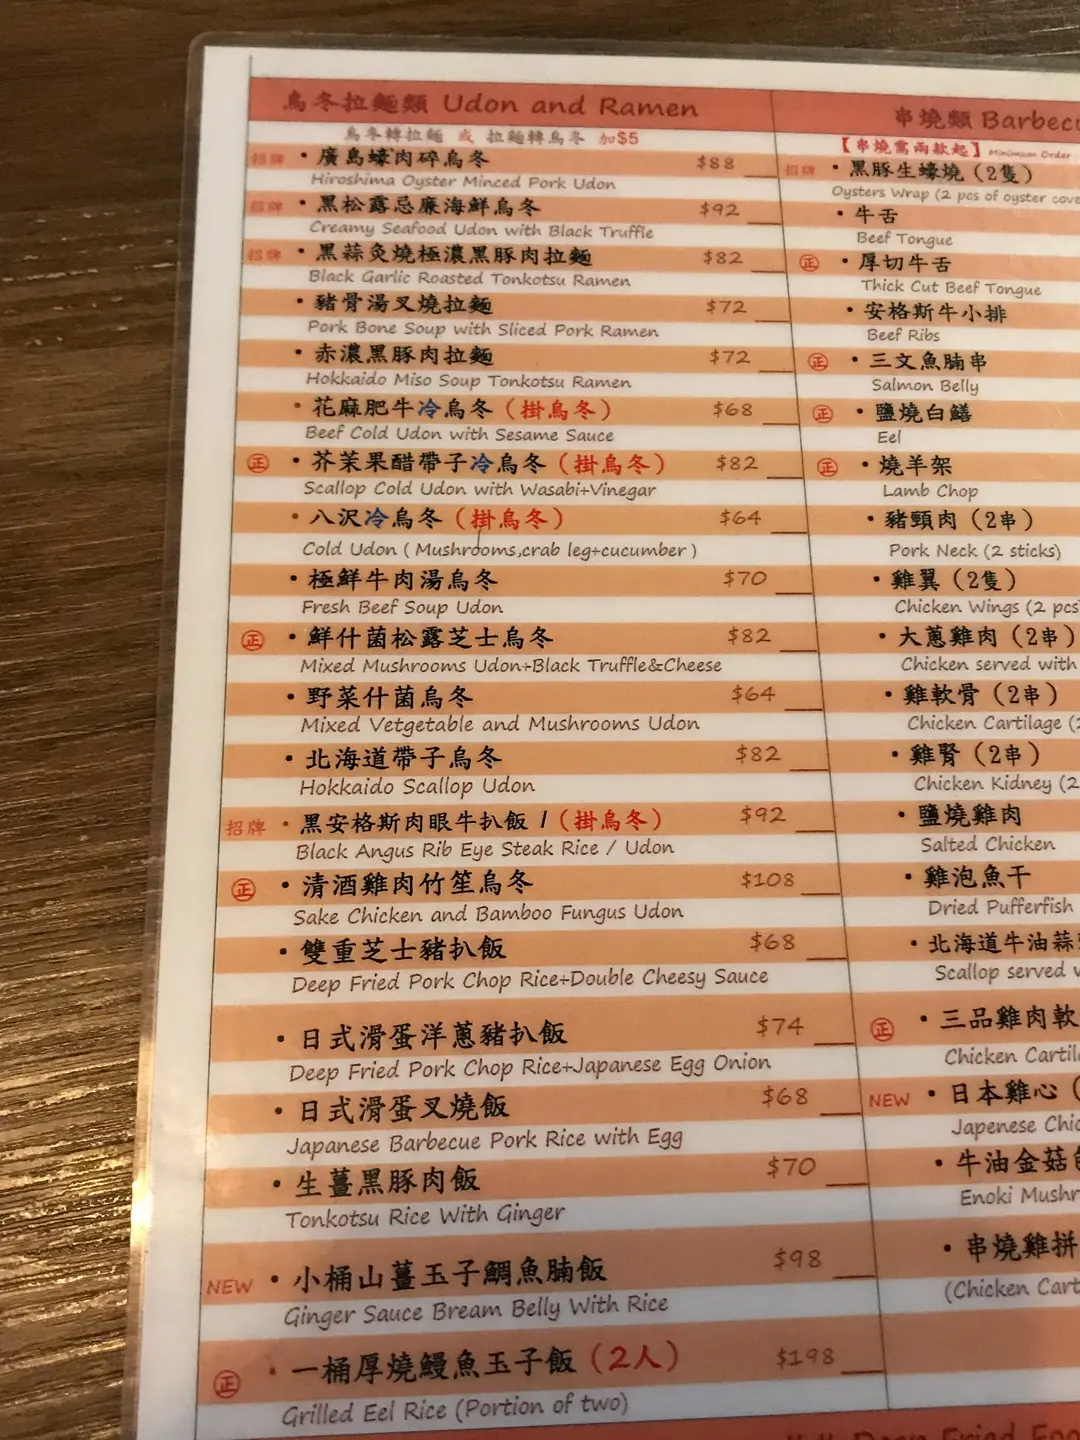 烏冬拉麵類 Udon and Ramen
烏冬轉拉麵 或 拉麵轉烏冬 加$5
招牌 • 廣島蠔肉碎烏冬 $88
Hiroshima Oyster Minced Pork Udon
招牌 • 黑松露忌廉海鮮烏冬 $92
Creamy Seafood Udon with Black Truffle
招牌 • 黑蒜灸燒極濃黑豚肉拉麵 $82
Black Garlic Roasted Tonkotsu Ramen
• 豬骨湯叉燒拉麵 $72
Pork Bone Soup with Sliced Pork Ramen
• 赤濃黑豚肉拉麵 $72
Hokkaido Miso Soup Tonkotsu Ramen
• 花麻肥牛冷烏冬（掛烏冬） $68
Beef Cold Udon with Sesame Sauce
㊣ • 芥茉果醋帶子冷烏冬（掛烏冬） $82
Scallop Cold Udon with Wasabi+Vinegar
• 八沢冷烏冬（掛烏冬） $64
Cold Udon ( Mushrooms,crab leg+cucumber )
• 極鮮牛肉湯烏冬 $70
Fresh Beef Soup Udon
㊣ • 鮮什菌松露芝士烏冬 $82
Mixed Mushrooms Udon+Black Truffle&Cheese
• 野菜什菌烏冬 $64
Mixed Vetgetable and Mushrooms Udon
• 北海道帶子烏冬 $82
Hokkaido Scallop Udon
招牌 • 黑安格斯肉眼牛扒飯 /（掛烏冬） $92
Black Angus Rib Eye Steak Rice / Udon
㊣ • 清酒雞肉竹笙烏冬 $108
Sake Chicken and Bamboo Fungus Udon
• 雙重芝士豬扒飯 $68
Deep Fried Pork Chop Rice+Double Cheesy Sauce
• 日式滑蛋洋蔥豬扒飯 $74
Deep Fried Pork Chop Rice+Japanese Egg Onion
• 日式滑蛋叉燒飯 $68
Japanese Barbecue Pork Rice with Egg
• 生薑黑豚肉飯 $70
Tonkotsu Rice With Ginger
NEW • 小桶山薑玉子鯛魚腩飯 $98
Ginger Sauce Bream Belly With Rice
㊣ • 一桶厚燒鰻魚玉子飯（2人） $198
Grilled Eel Rice (Portion of two)
串燒類 Barbecu
【串燒需兩款起】Minimum Order
招牌 • 黑豚生蠔燒（2隻）
Oysters Wrap (2 pcs of oyster cove
• 牛舌
Beef Tongue
㊣ • 厚切牛舌
Thick Cut Beef Tongue
• 安格斯牛小排
Beef Ribs
㊣ • 三文魚腩串
Salmon Belly
㊣ • 鹽燒白鱔
Eel
㊣ • 燒羊架
Lamb Chop
• 豬頸肉（2串）
Pork Neck (2 sticks)
• 雞翼（2隻）
Chicken Wings (2 pcs
• 大蔥雞肉（2串）
Chicken served with
• 雞軟骨（2串）
Chicken Cartilage (2
• 雞腎（2串）
Chicken Kidney (2
• 鹽燒雞肉
Salted Chicken
• 雞泡魚干
Dried Pufferfish
• 北海道牛油蒜
Scallop served w
㊣ • 三品雞肉軟
Chicken Cartil
NEW • 日本雞心（
Japenese Chic
• 牛油金菇
Enoki Mushr
• 串燒雞拼
(Chicken Cart
Deep Fried Foo